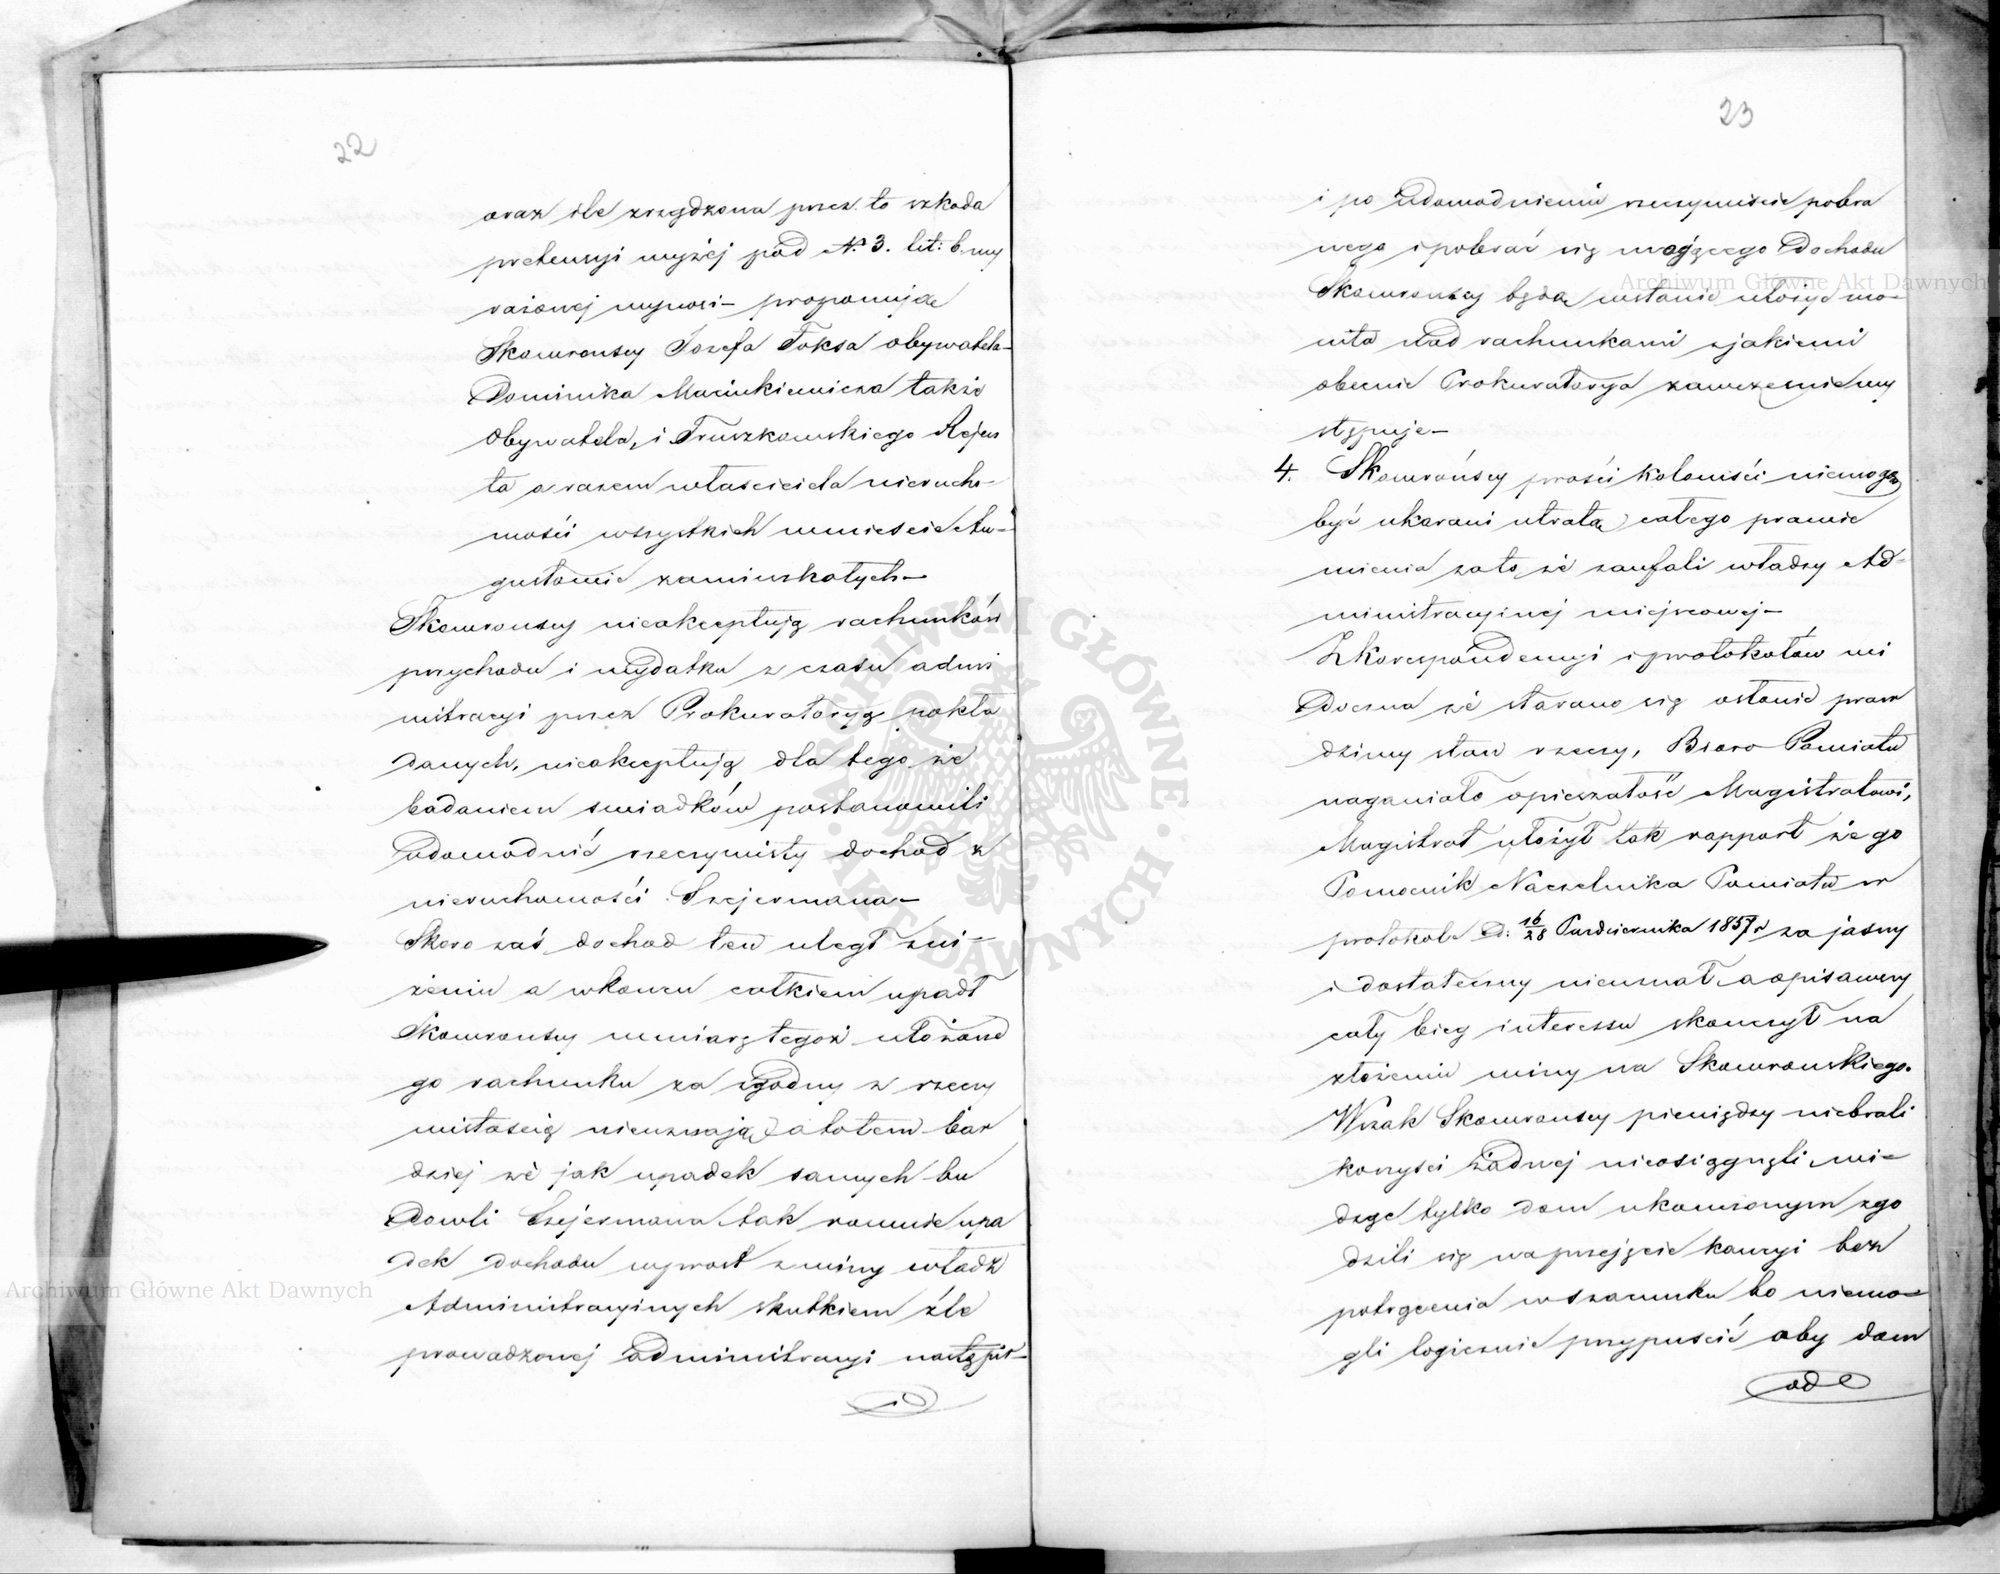 22
oraz ile zrządzona przez to szkoda
pretensyi wyżej pod № 3. lit: b. wy
rażonej wynosi – proponują
Skowronscy Józefa Foksa obywatela
Dominika Marinkiewicza także
Obywatela, i Truszkowskiego Rejen
ta a razem właściciela nierucho-
mości wszystkich w mieście Au-
gustowie zamieszkałych –
Skowronscy nieakceptują rachunków
przychodu i wydatku z czasu admi
nistracyi przez Prokuratoryą pokła
danych, nieakceptują dla tego że
badaniem swiadków postanowili
udowodnić rzeczywisty dochod z
nieruchomości Szejermana –
Skoro zaś dochod ten uległ zni-
żeniu a wkońcu całkiem upadł
Skowronscy w miarę tegoż ułożone
go rachunku za zgodny z rzeczy
wistością nieuznają, a to tem bar
dziej że jak upadek samych bu
dowli Szejermana tak równie upa
dek dochodu wprost z winy władz
Administracyinych skutkiem źle
prowadzonej administracyi nastąpił –
i
23
i po udowodnieniu rzeczywiście pobra
nego i pobrać się mogącego Dochodu
Skowronscy będą wstanie ułożyć mo-
nita nad rachunkami z jakiemi
obecnie Prokuratorya zawcześnie wy
stępuje –
4. Skowrońscy prości koloniści niemogą
być ukarani utratą całego prawie
mienia zato, że zaufali władzy Ad-
ministracyinej miejscowej –
Z korespondencyi i protokołów wi
doczna że starano się osłonić praw
dziwy stan rzeczy, Biuro Powiatu
naganiało opieszałość Magistratowi,
Magistrat ułożył tak rapport że go
Pomocnik Naczelnika Powiatu w
protokole D: 16/28 Pazdziernika 1857 r za jasny
i dostateczny nieuznał, a opisawszy
cały bieg interessu skończył na
złożeniu winy na Skowronskiego.
Wszak Skowronscy pieniędzy niebrali
korzyści żadnej nieosiągnęli, wi-
dząc tylko dom ukonczonym zgo
dzili się na przejęcie kaucyi bez
potrącenia w szacunku bo niemo-
gli logicznie przypuścić aby dom
od
Archiwum Główne Akt Dawnych
Archiwum Główne Akt Dawnych
ARCHIWUM GŁÓWNE · AKT DAWNYCH ·